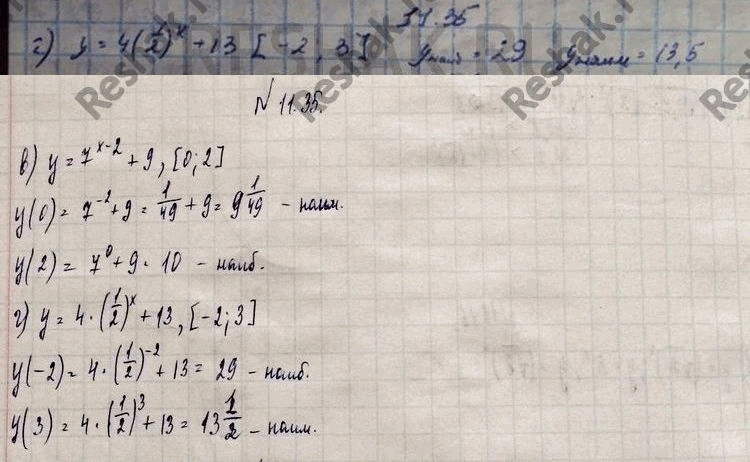 11.35
г) y = 4(1/2)^x + 13 [-2; 3] yнаиб = 29 yнаим = 13,5
№ 11.35.
в) y = 7^(x-2) + 9, [0; 2]
y(0) = 7^(-2) + 9 = 1/49 + 9 = 9 1/49 - наим.
y(2) = 7^0 + 9 = 10 - наиб.
г) y = 4 · (1/2)^x + 13, [-2; 3]
y(-2) = 4 · (1/2)^(-2) + 13 = 29 - наиб.
y(3) = 4 · (1/2)^3 + 13 = 13 1/2 - наим.